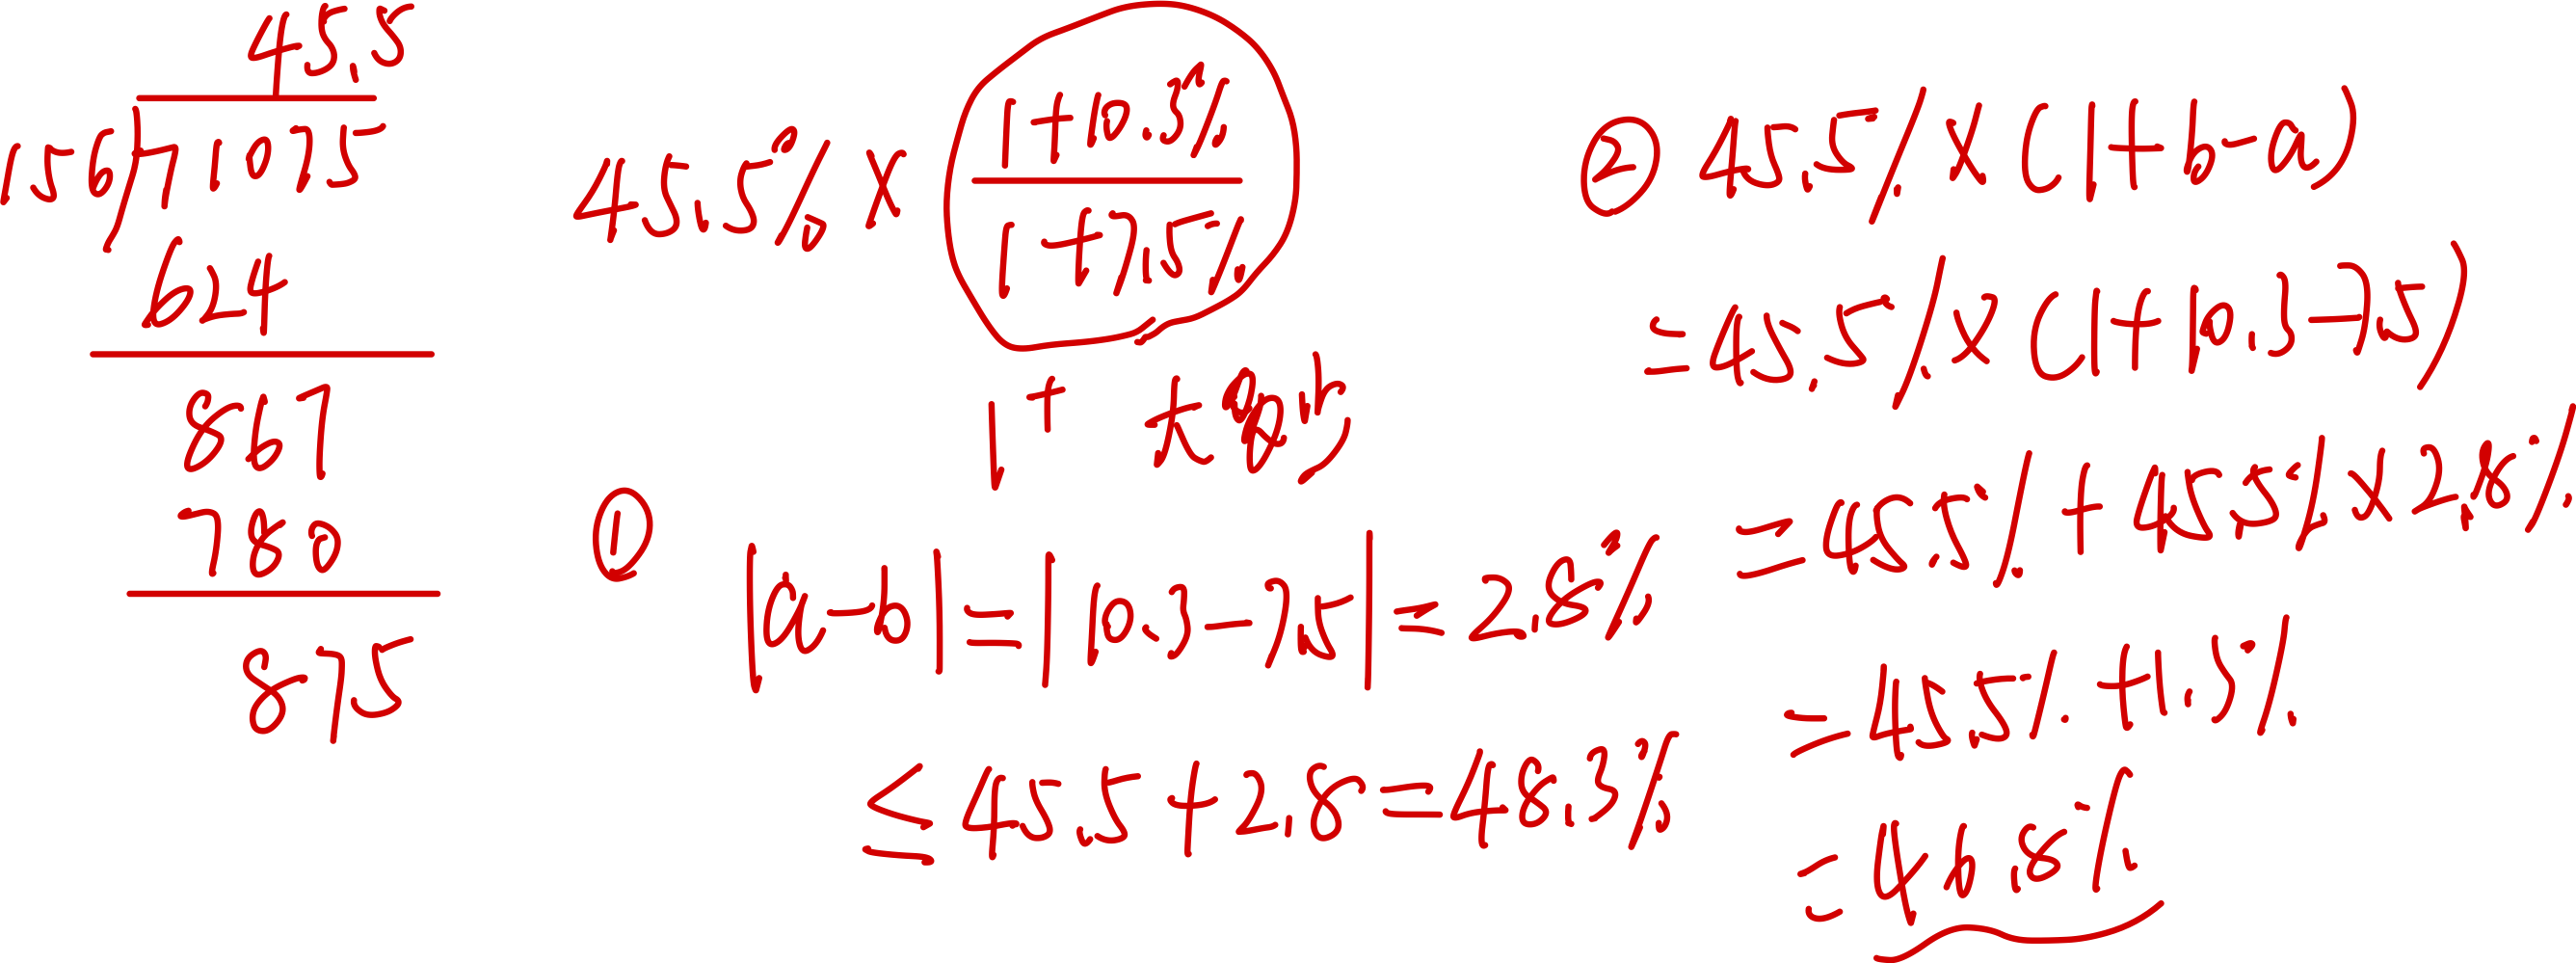 45.5
.156)71.075
624
867
780
875
45.5% × (1+10.3%)/(1+7.5%)
1⁺
①
|a-b|=|10.3-7.5|=2.8%
≤45.5+2.8=48.3%
② 45.5% × (1+b-a)
=45.5% × (1+10.3-7.5)
=45.5%+45.5%×2.8%
=45.5%+1.3%
=46.8%